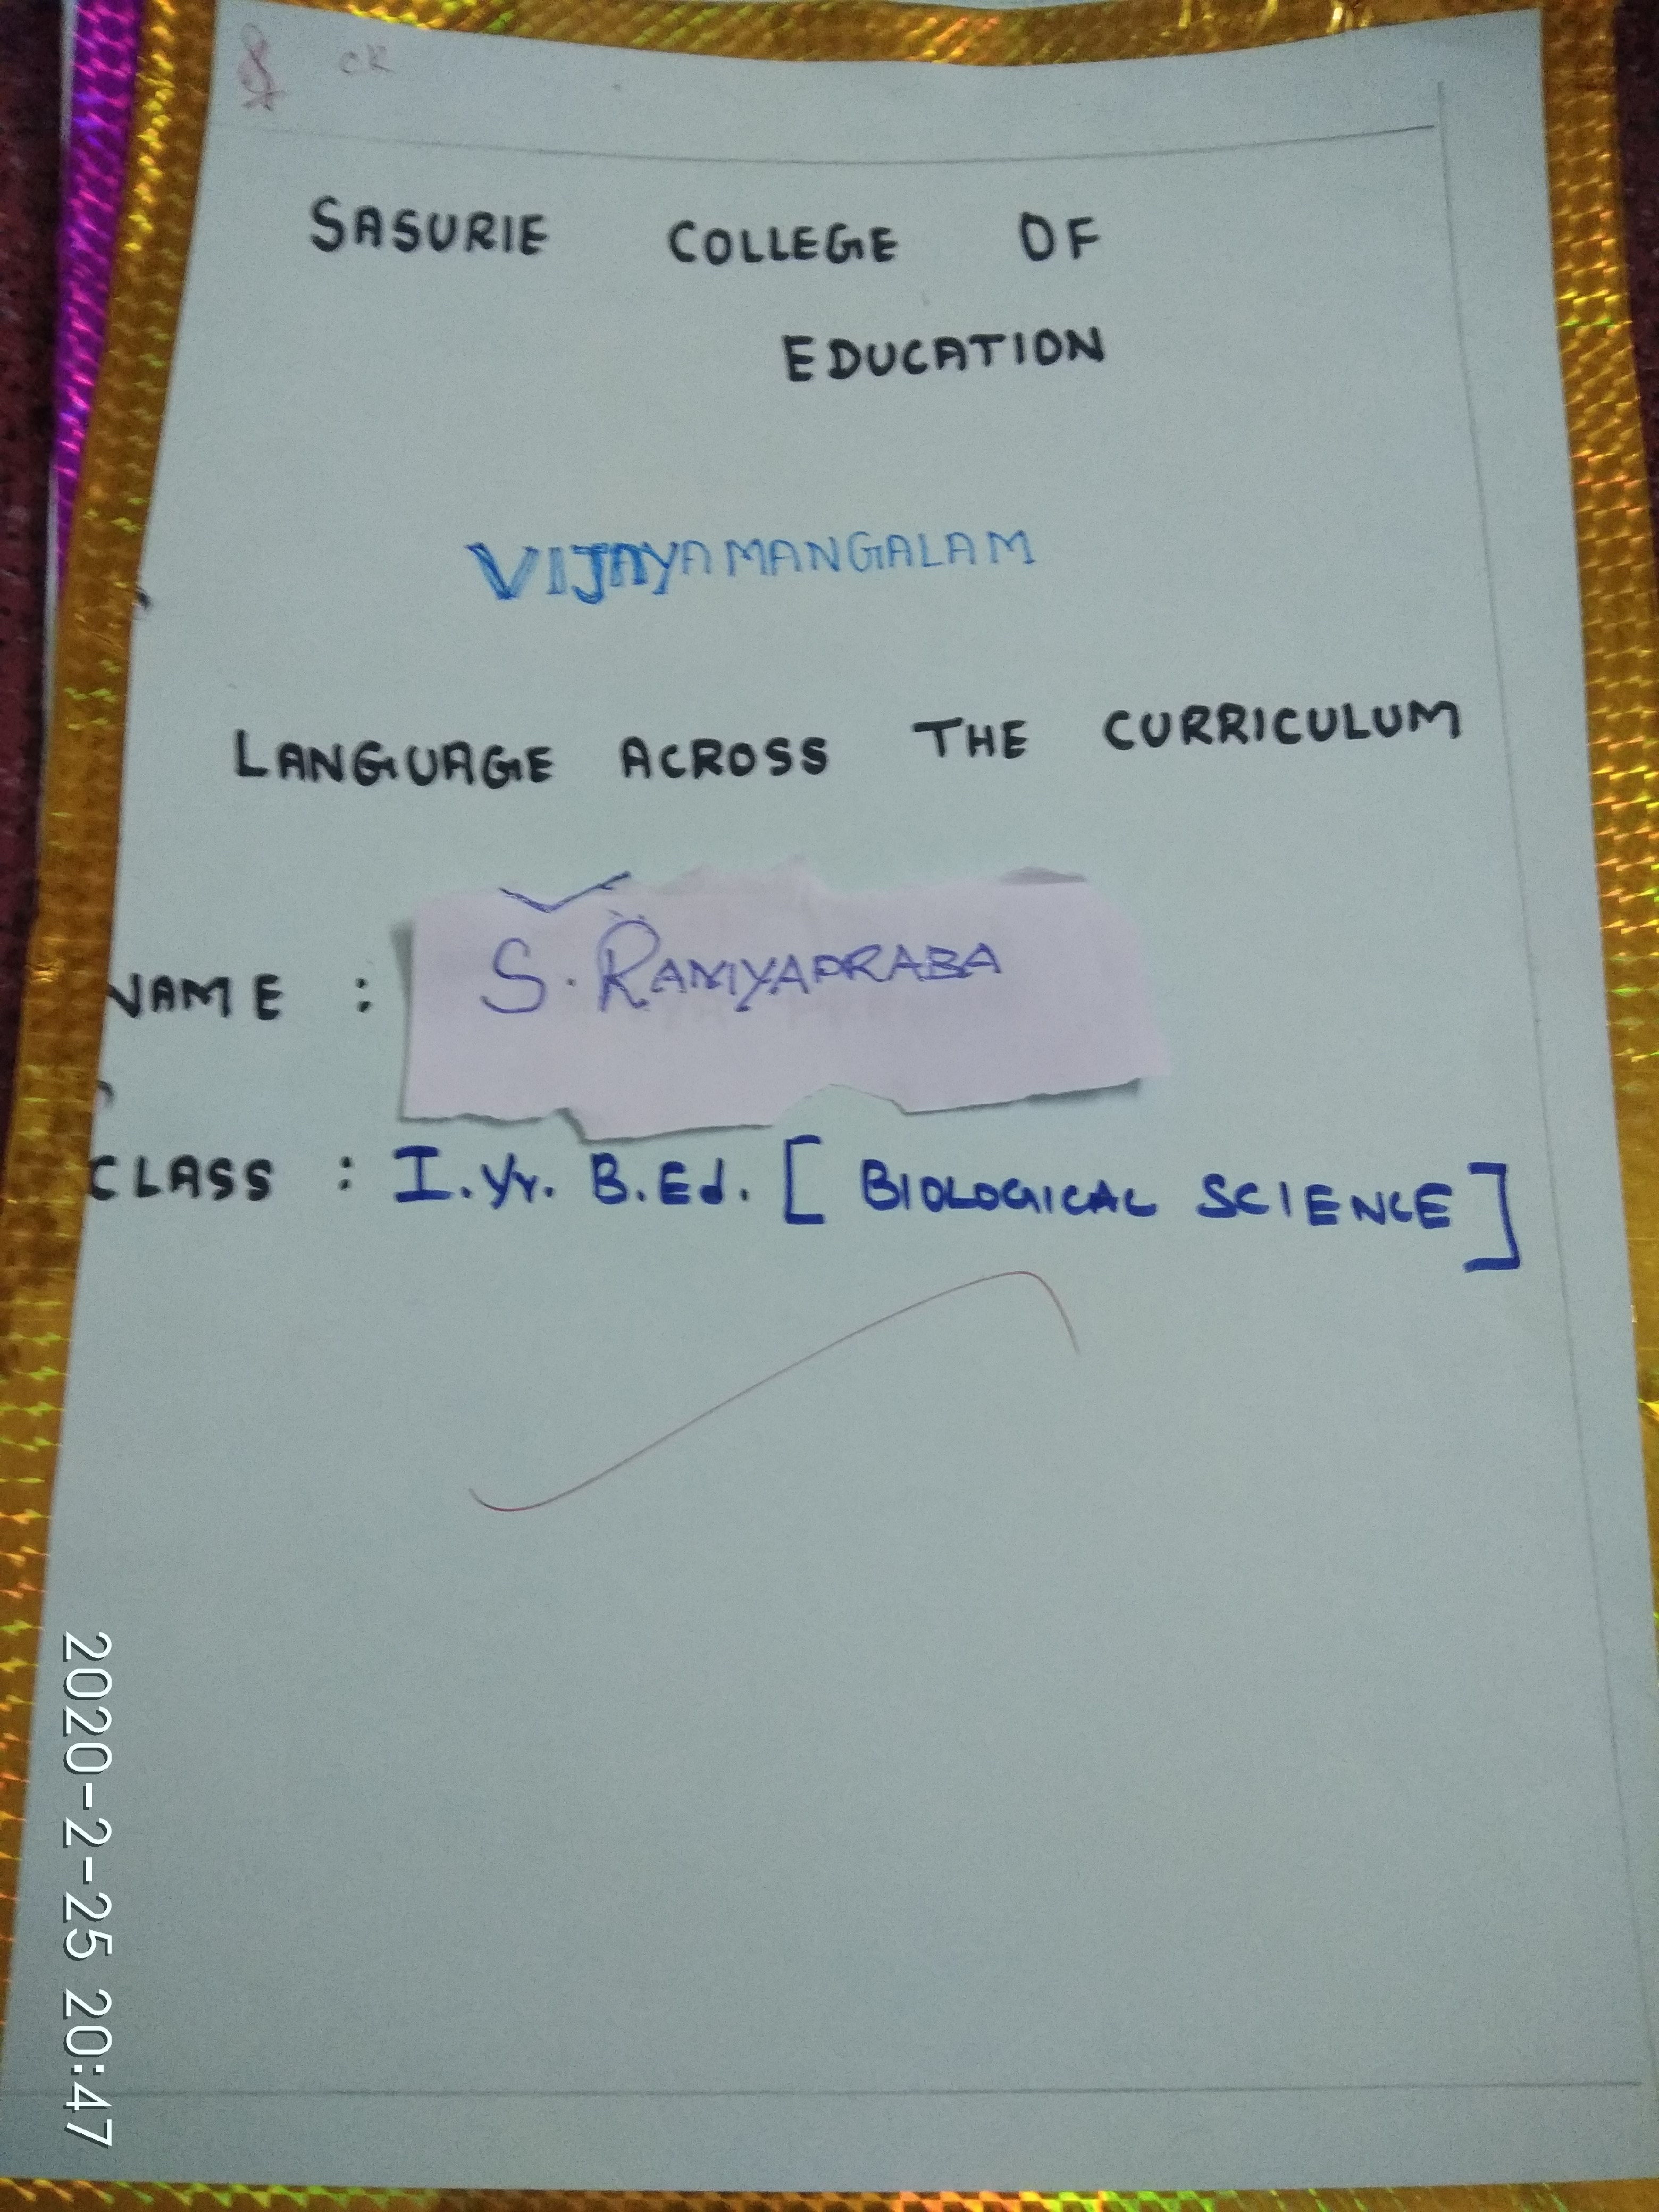 SASURIE COLLEGE OF
EDUCATION
VIJAYAMANGALAM
LANGUAGE ACROSS THE CURRICULUM
NAME : S. RAMYAPRABA
CLASS : I. Yr. B.Ed. [ BIOLOGICAL SCIENCE ]
2020-2-25 20:47